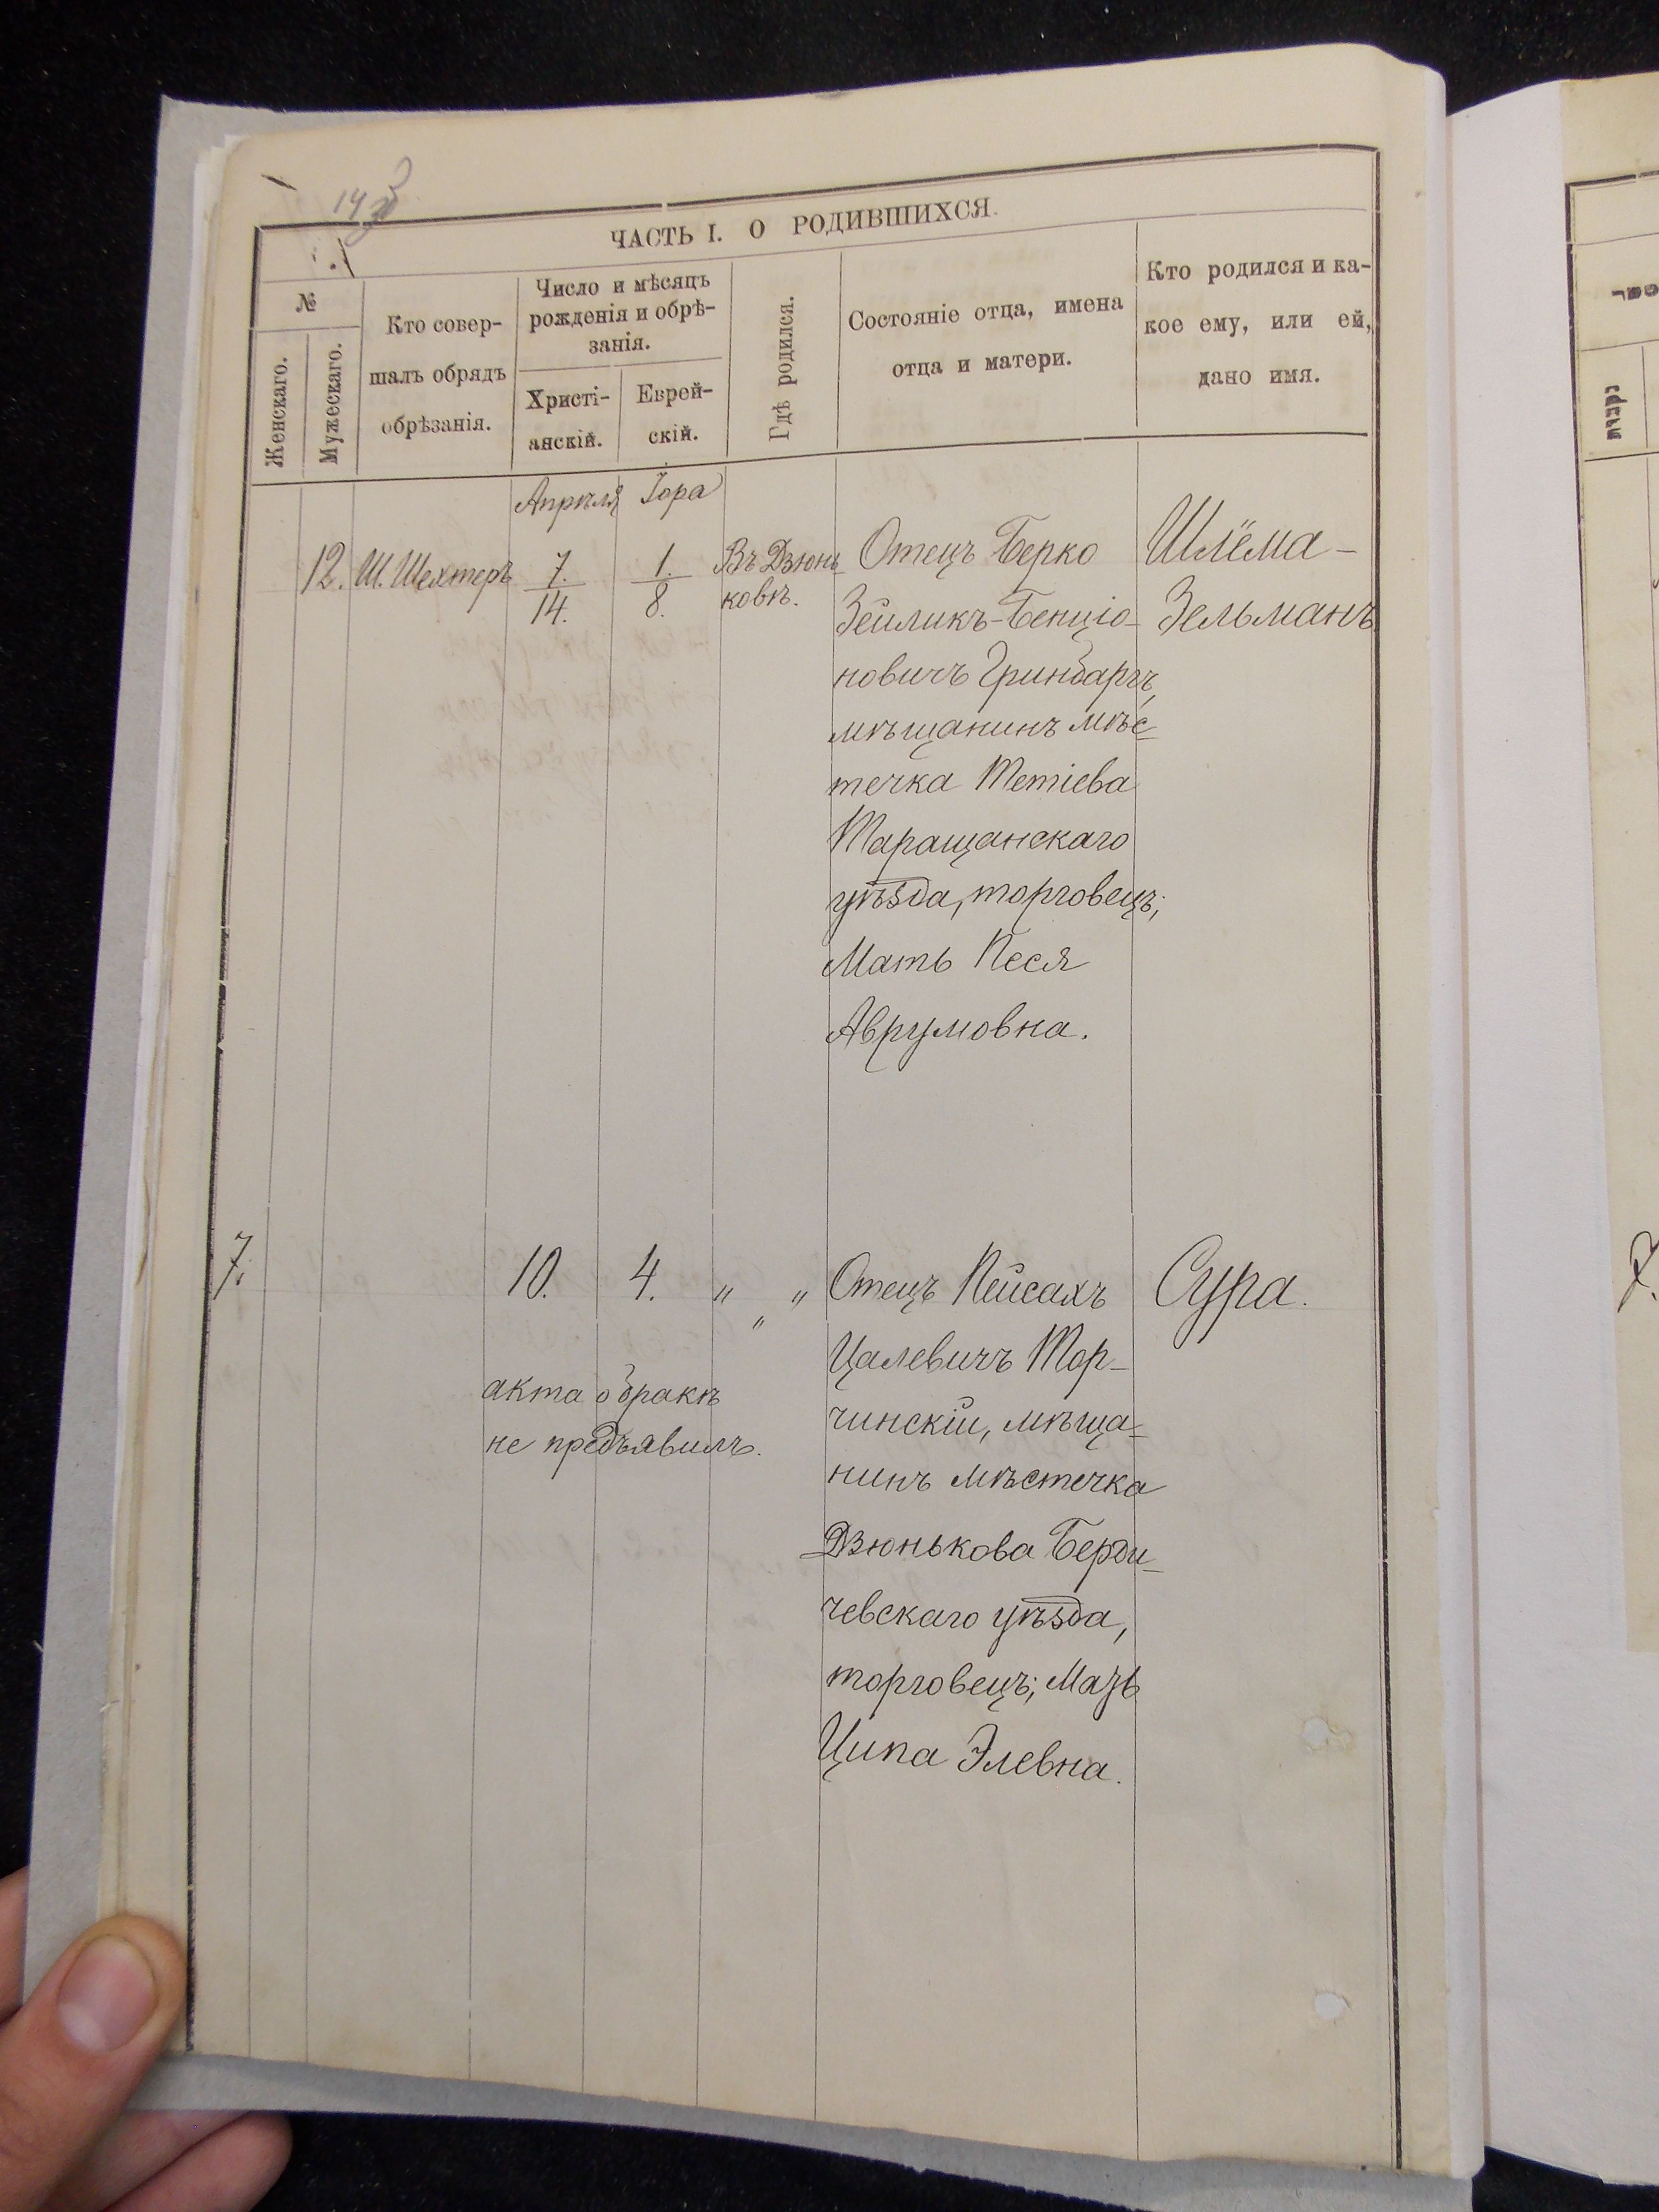 ЧАСТЬ I. О РОДИВШИХСЯ.
№
Женскаго.
Мужескаго.
Кто совер-
шалъ обрядъ
обрѣзанія.
Число и мѣсяцъ
рожденія и обрѣ-
занія.
Христі-
анскій.
Еврей-
скій.
Гдѣ родился.
Состояніе отца, имена
отца и матери.
Кто родился и ка-
кое ему, или ей,
дано имя.
Апрѣля Іора
12. Ш. Шехтеръ 7. 1. Въ Дзюнь-
14. 8. ковѣ.
Отецъ Берко
Зейликъ-Бенціо-
новичъ Гринбаргъ,
мѣщанинъ мѣс-
течка Тетіева
Таращанскаго
уѣзда, торговецъ;
Мать Песя
Аврумовна.
Шлёма-
Зельманъ.
7. 10. 4. " " "
акта о бракѣ
не предъявилъ.
Отецъ Пейсахъ
Цалевичъ Тор-
чинскій, мѣща-
нинъ мѣстечка
Дзюнькова Берди-
чевскаго уѣзда,
торговецъ; Мать
Ципа Элевна.
Сура.
7.